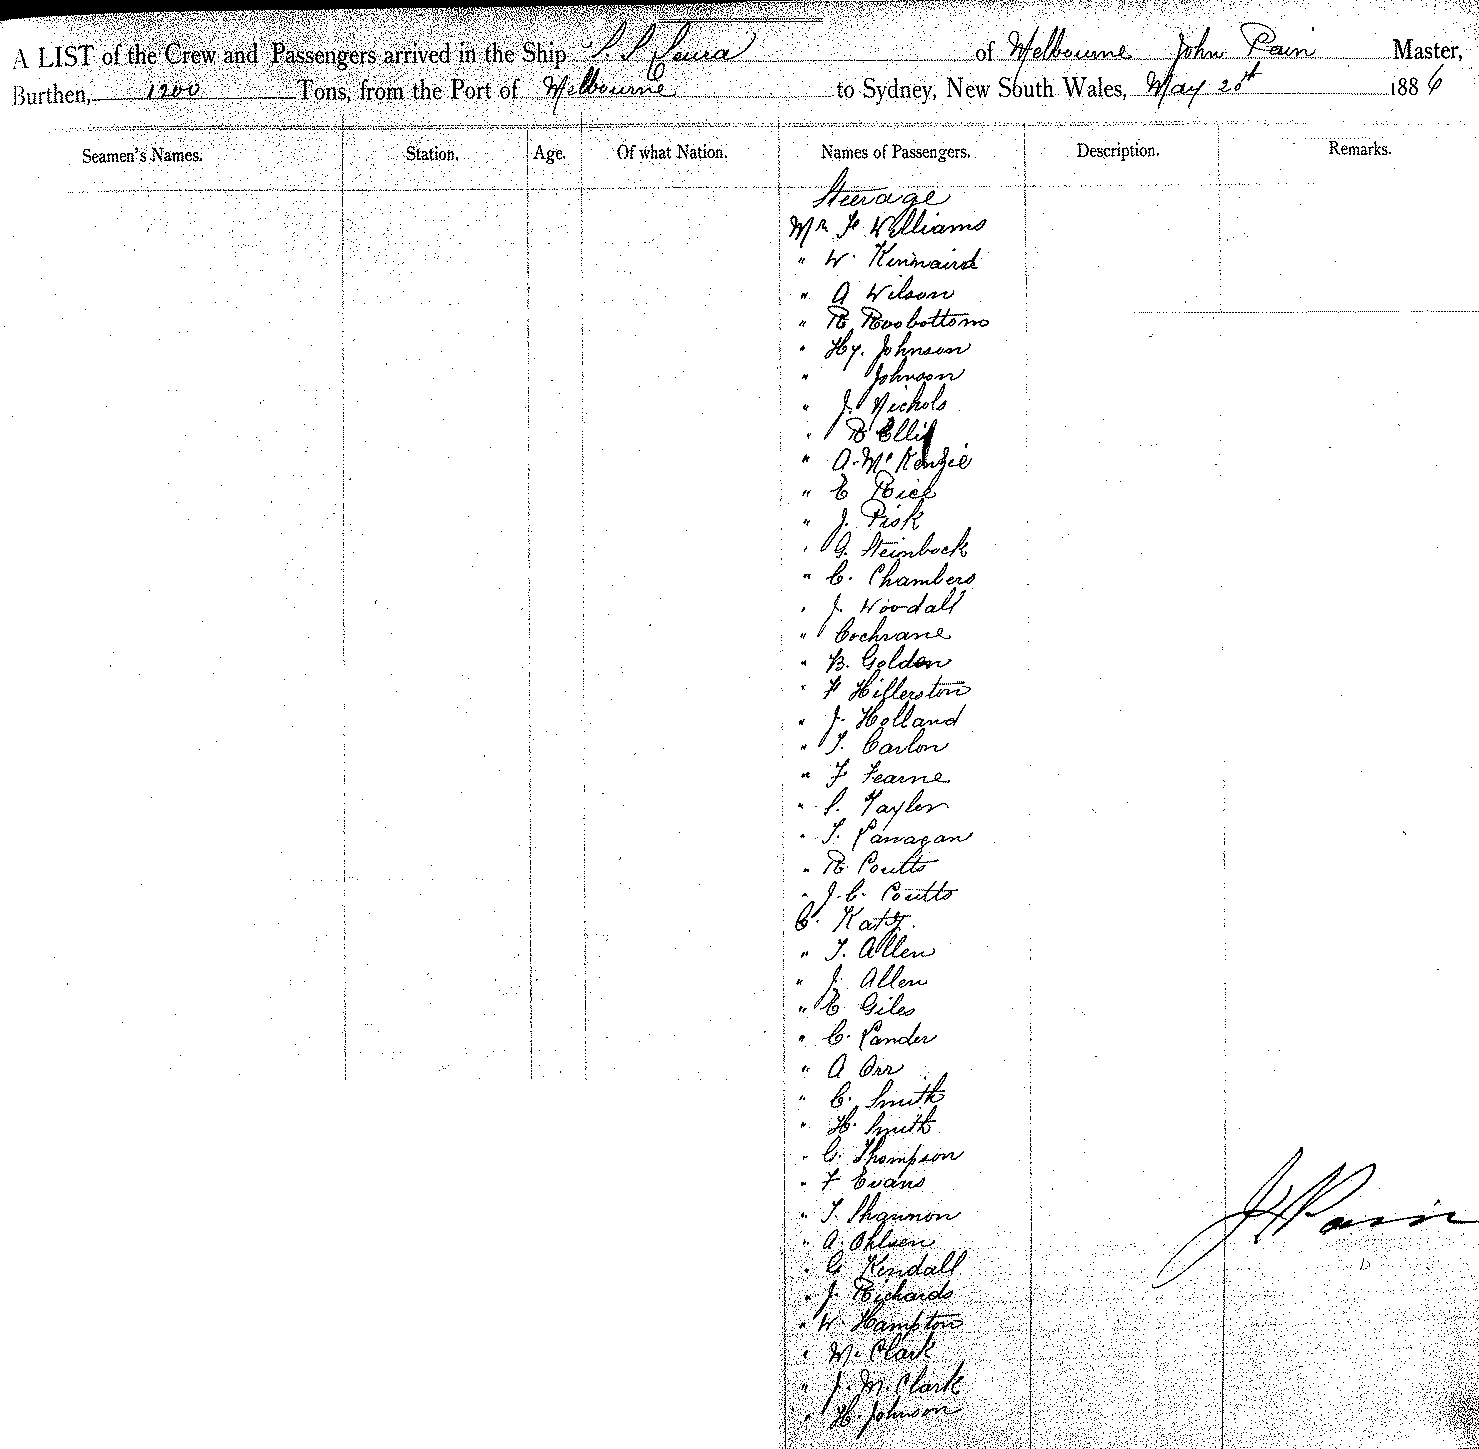 A LIST of the Crew and Passengers arrived in the Ship S. S. Leura of Melbourne John Pain Master,
Burthen, 1200 Tons, from the Port of Melbourne to Sydney, New South Wales, May 20th 1886
Seamen's Names. Station. Age. Of what Nation. Names of Passengers. Description. Remarks.
Steerage
Mr F Williams
" W. Kinnaird
" A Wilson
" R Roobottom
" Hy. Johnson
" Johnson
" J. Nichols
" R Ellis
" A. McKenzie
" E Rice
" J. Pisk
" G. Steinbock
" C. Chambers
" J. Woodall
" Cochrane
" B. Golden
" F Hillerston
" J. Holland
" T. Carlon
" F Fearne
" S. Taylor
" T. Lanagan
" R. Coutts
" J. C. Coutts
C. Katz.
" T. Allen
" J. Allen
" E Giles
" C. Lander
" A Orr
" C. Smith
" H. Smith
" G. Thompson
" F Evans
" T. Shannon
" A. Ohlsen
" G Kendall
" J. Richards
" W. Hampton
" W. Clark
" J. M. Clark
" H. Johnson
J Pain